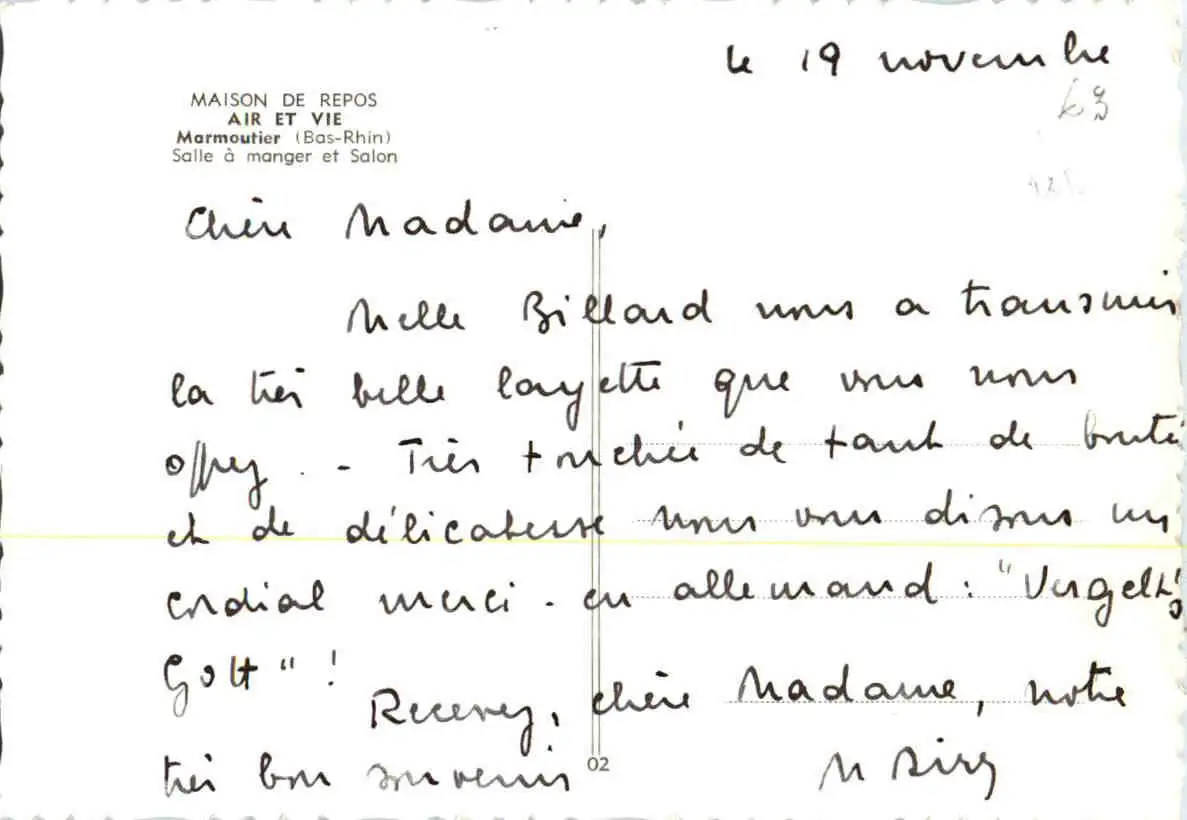 le 19 novembre
63
MAISON DE REPOS
AIR ET VIE
Marmoutier (Bas-Rhin)
Salle à manger et Salon
Chère Madame,
Melle Billard nous a transmis
la très belle layette que vous nous
offrez. - Très touchée de tant de bonté
et de délicatesse nous vous disons un
cordial merci - en allemand : "Vergelt's
Gott" !
Recevez, chère Madame, notre
très bon souvenir
02
M